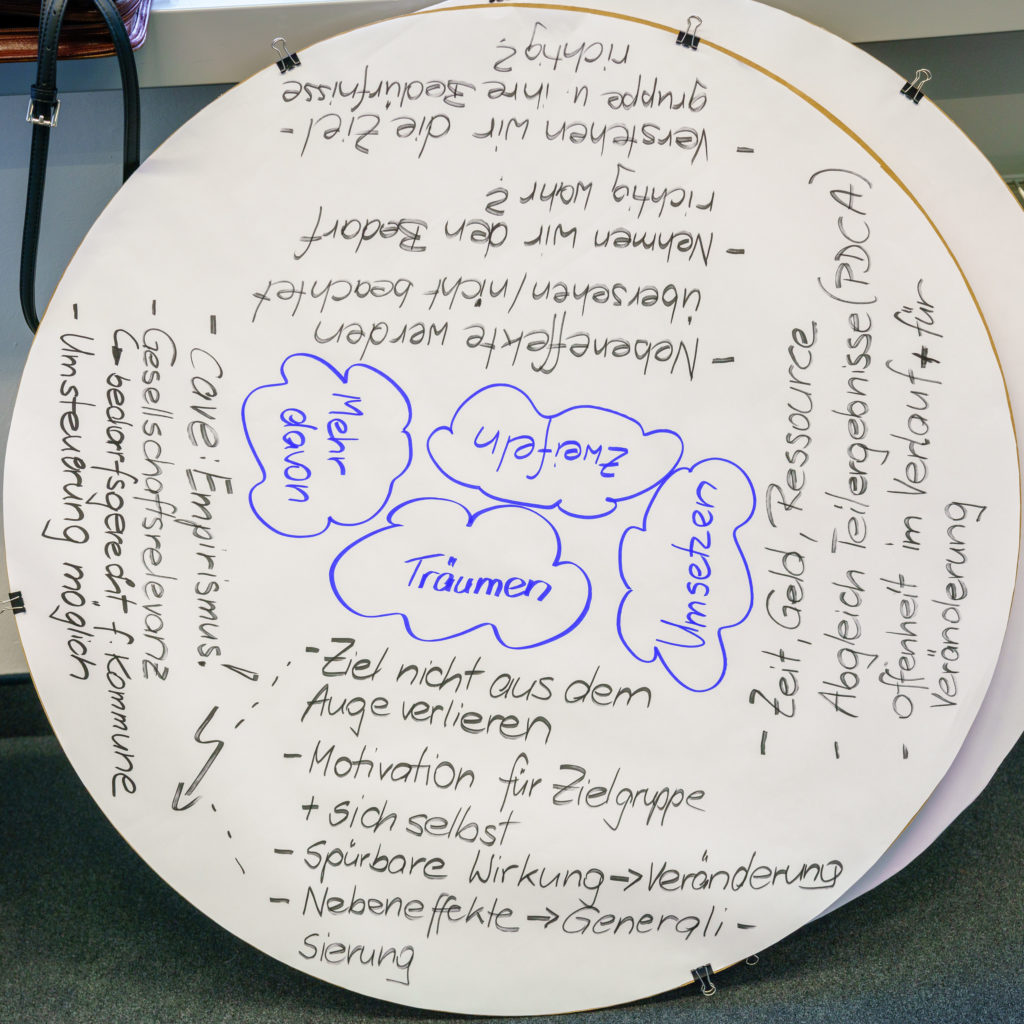 Träumen
- Ziel nicht aus dem
Auge verlieren
- Motivation für Zielgruppe
+ sich selbst
- Spürbare Wirkung → Veränderung
- Nebeneffekte → Generali-
sierung
Umsetzen
- Zeit, Geld, Ressource
- Abgleich Teilergebnisse (PDCA)
- Offenheit im Verlauf + für
Veränderung
Zweifeln
- Nebeneffekte werden
übersehen/nicht beachtet
- Nehmen wir den Bedarf
richtig wahr?
- Verstehen wir die Ziel-
gruppe u ihre Bedürfnisse
richtig?
Mehr
davon
- Cave: Empirismus!
- Gesellschaftsrelevanz
↳ bedarfsgerecht f. Kommune
- Umsteuerung möglich